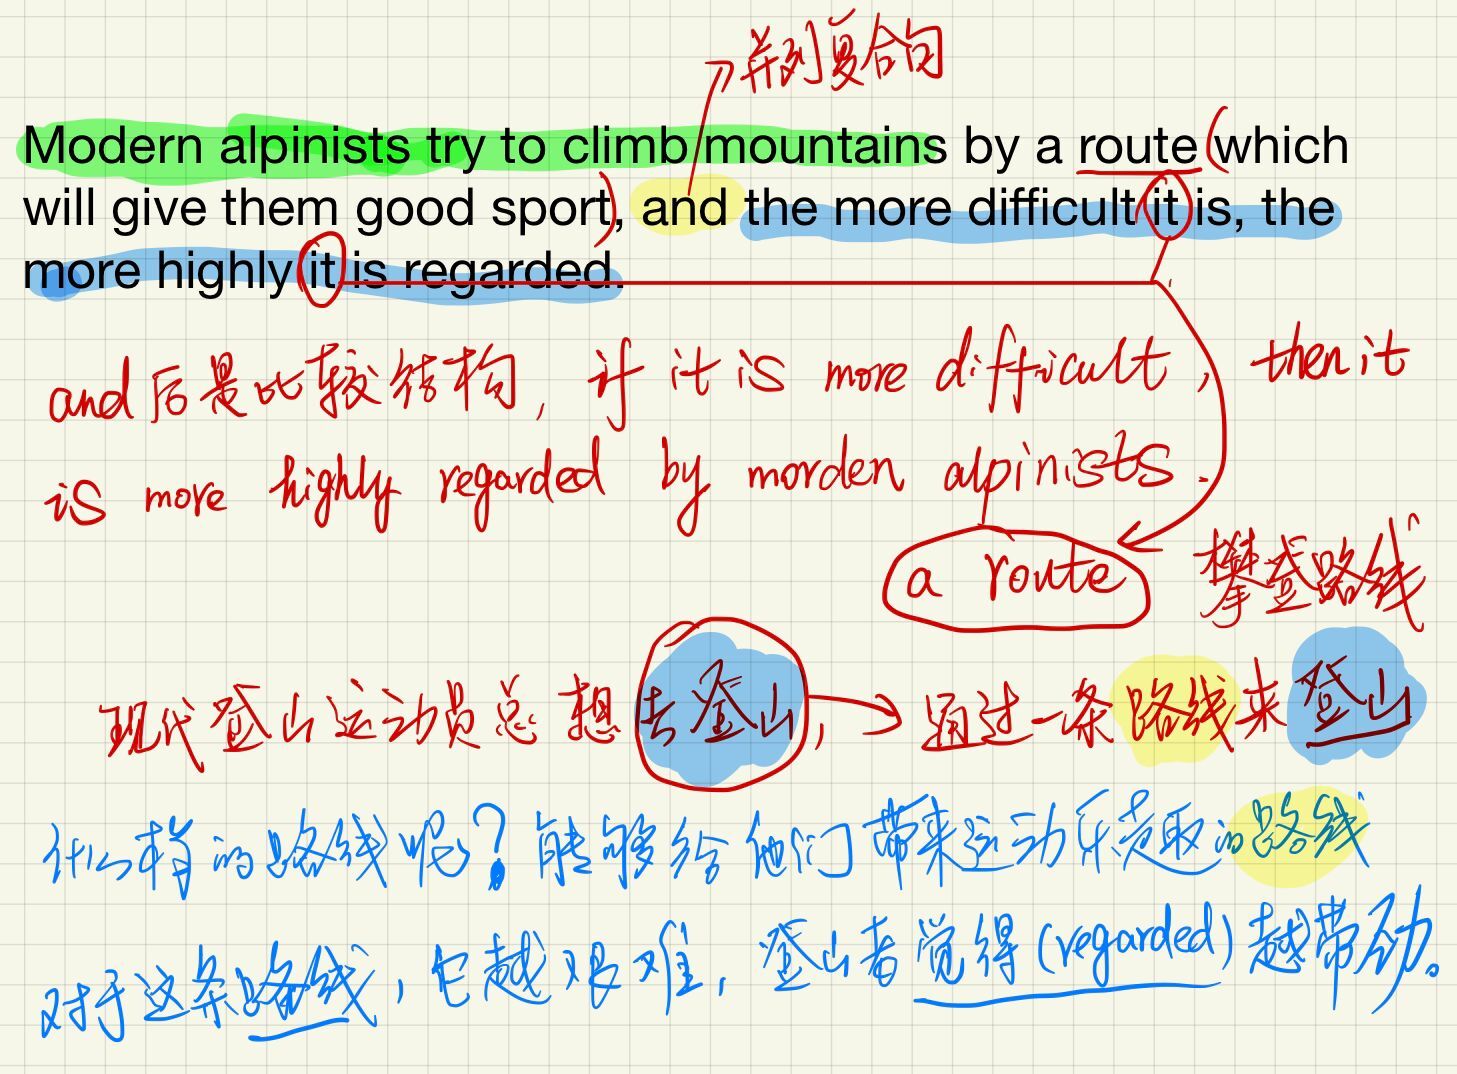 并列复合句
Modern alpinists try to climb mountains by a route (which
will give them good sport), and the more difficult it is, the
more highly it is regarded.
and后是比较结构, if it is more difficult, then it
is more highly regarded by morden alpinists.
a route 攀登路线
现代登山运动员总想去登山, 通过一条路线来登山
什么样的路线呢? 能够给他们带来运动乐趣的路线
对于这条路线, 它越艰难, 登山者觉得(regarded)越带劲。